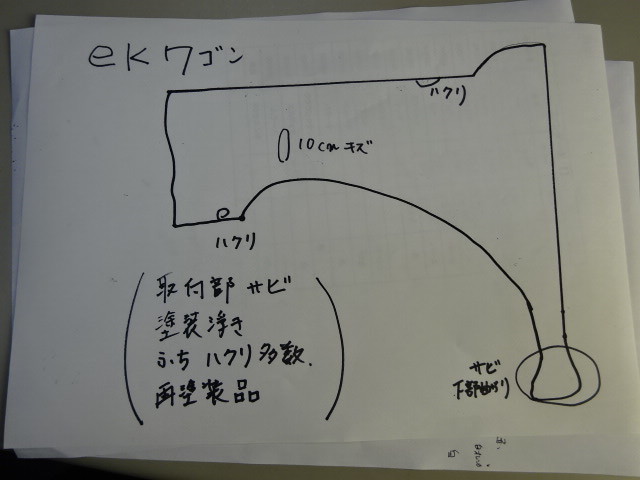 ekワゴン
ハクリ
10cmキズ
ハクリ
取付部サビ
塗装浮き
ふちハクリ多数.
再塗装品
サビ
下部曲り